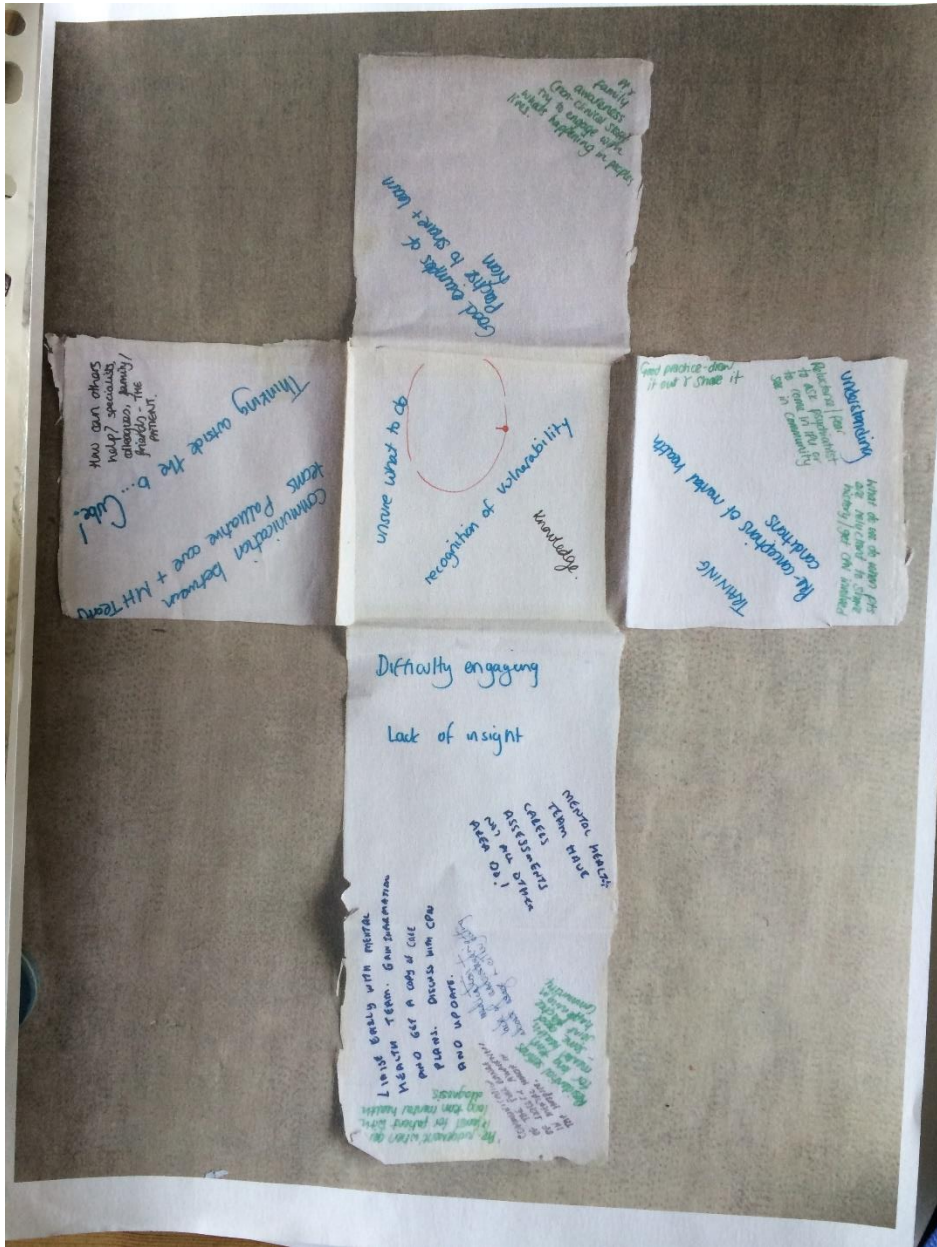 family
awareness
(non-clinical staff
try to engage with
whats happening in peoples
lives.
Good examples of
Practise to share + learn
from
How can others
help? specialists,
colleagues, family/
friends - THE
PATIENT.
Thinking outside the b... Cube!
Communication between
teams Palliative care + MH Teams
unsure what to do
recognition of vulnerability
Knowledge.
Good practice - draw
it out & share it
understanding
Reluctance / fear
to ask psychiatrist
to come in IPU or
see in community
What do we do when pts
are reluctant to share
history/get CPN involved
Pre-conceptions of mental health
conditions
TRAINING
Difficulty engaging
Lack of insight
MENTAL HEALTH
TEAM HAVE
CARERS
ASSESSMENTS
ALL OTHER
AREA DO!
LIAISE EARLY WITH MENTAL
HEALTH TEAM. GAIN INFORMATION
AND GET A COPY OF CARE
PLANS. DISCUSS WITH CPN
AND UPDATE.
judgement when
for patient with
long term mental health
diagnosis
COMMUNICATION
community